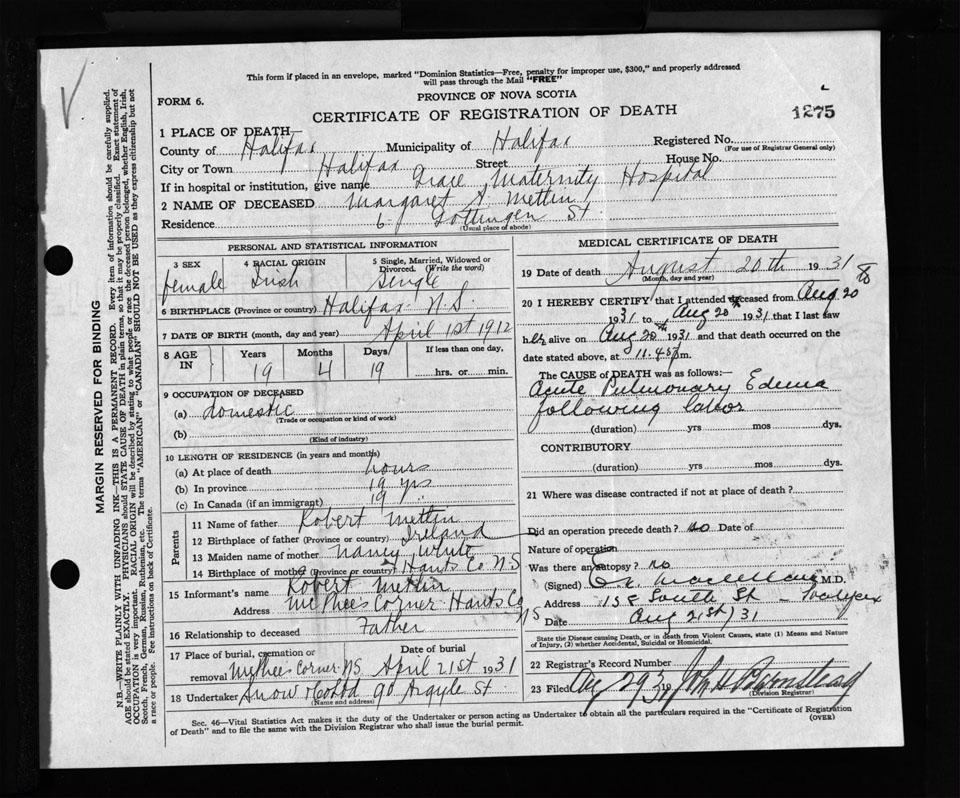 This form if placed in an envelope, marked "Dominion Statistics—Free, penalty for improper use, $300," and properly addressed
will pass through the Mail "FREE"
PROVINCE OF NOVA SCOTIA
FORM 6.
CERTIFICATE OF REGISTRATION OF DEATH
1275
1 PLACE OF DEATH
County of Halifax Municipality of Halifax Registered No.
(For use of Registrar General only)
City or Town Halifax Street House No.
If in hospital or institution, give name Grace Maternity Hospital
2 NAME OF DECEASED Margaret A. Mettin
Residence 6 Gottingen St
(Usual place of abode)
PERSONAL AND STATISTICAL INFORMATION
3 SEX female
4 RACIAL ORIGIN Irish
5 Single, Married, Widowed or Divorced. (Write the word) Single
6 BIRTHPLACE (Province or country) Halifax N.S.
7 DATE OF BIRTH (month, day and year) April 1st 1912
8 AGE IN Years 19 Months 4 Days 19 If less than one day, hrs. or min.
9 OCCUPATION OF DECEASED
(a) domestic
(Trade or occupation or kind of work)
(b)
(Kind of industry)
10 LENGTH OF RESIDENCE (in years and months)
(a) At place of death hours
(b) In province 19 yrs
(c) In Canada (if an immigrant) 19
Parents
11 Name of father Robert Mettin
12 Birthplace of father (Province or country) Ireland
13 Maiden name of mother Nancy White
14 Birthplace of mother (Province or country) Hants Co N.S
15 Informant's name Robert Mettin
Address McPhee's Corner Hants Co NS
16 Relationship to deceased Father
17 Place of burial, cremation or removal McPhees Corner NS Date of burial April 21st 1931
18 Undertaker Snow & Co Ltd 90 Argyle St
(Name and address)
MEDICAL CERTIFICATE OF DEATH
19 Date of death August 20th 1931
(Month, day and year)
20 I HEREBY CERTIFY that I attended deceased from Aug 20
1931 to Aug 20th 1931 that I last saw
her alive on Aug 20th 1931 and that death occurred on the
date stated above, at 11.45 p.m.
The CAUSE OF DEATH was as follows:
Acute Pulmonary Edema
following labor
(duration) yrs mos dys.
CONTRIBUTORY
(duration) yrs mos dys.
21 Where was disease contracted if not at place of death?
Did an operation precede death? no Date of
Nature of operation
Was there an autopsy? no
(Signed) M.D.
Address 158 South St - Halifax
Date Aug 21st/31
State the Disease causing Death, or in death from Violent Causes, state (1) Means and Nature
of Injury, (2) whether Accidental, Suicidal or Homicidal.
22 Registrar's Record Number
23 Filed Aug 29 1931 John H Barnstead
(Division Registrar)
Sec. 46—Vital Statistics Act makes it the duty of the Undertaker or person acting as Undertaker to obtain all the particulars required in the "Certificate of Registration
of Death" and to file the same with the Division Registrar who shall issue the burial permit.
(OVER)
MARGIN RESERVED FOR BINDING
N.B.—WRITE PLAINLY WITH UNFADING INK—THIS IS A PERMANENT RECORD. Every item of information should be carefully supplied.
AGE should be stated EXACTLY. PHYSICIANS should STATE CAUSE OF DEATH in plain terms, so that it may be properly classified. Exact statement of
OCCUPATION is very important. RACIAL ORIGIN will be described by stating to what people or race the deceased person belonged, whether English, Irish,
Scotch, French, German, Russian, Ruthenian, etc. The terms "AMERICAN" or "CANADIAN" SHOULD NOT BE USED as they express citizenship but not
a race or people. See instructions on back of Certificate.